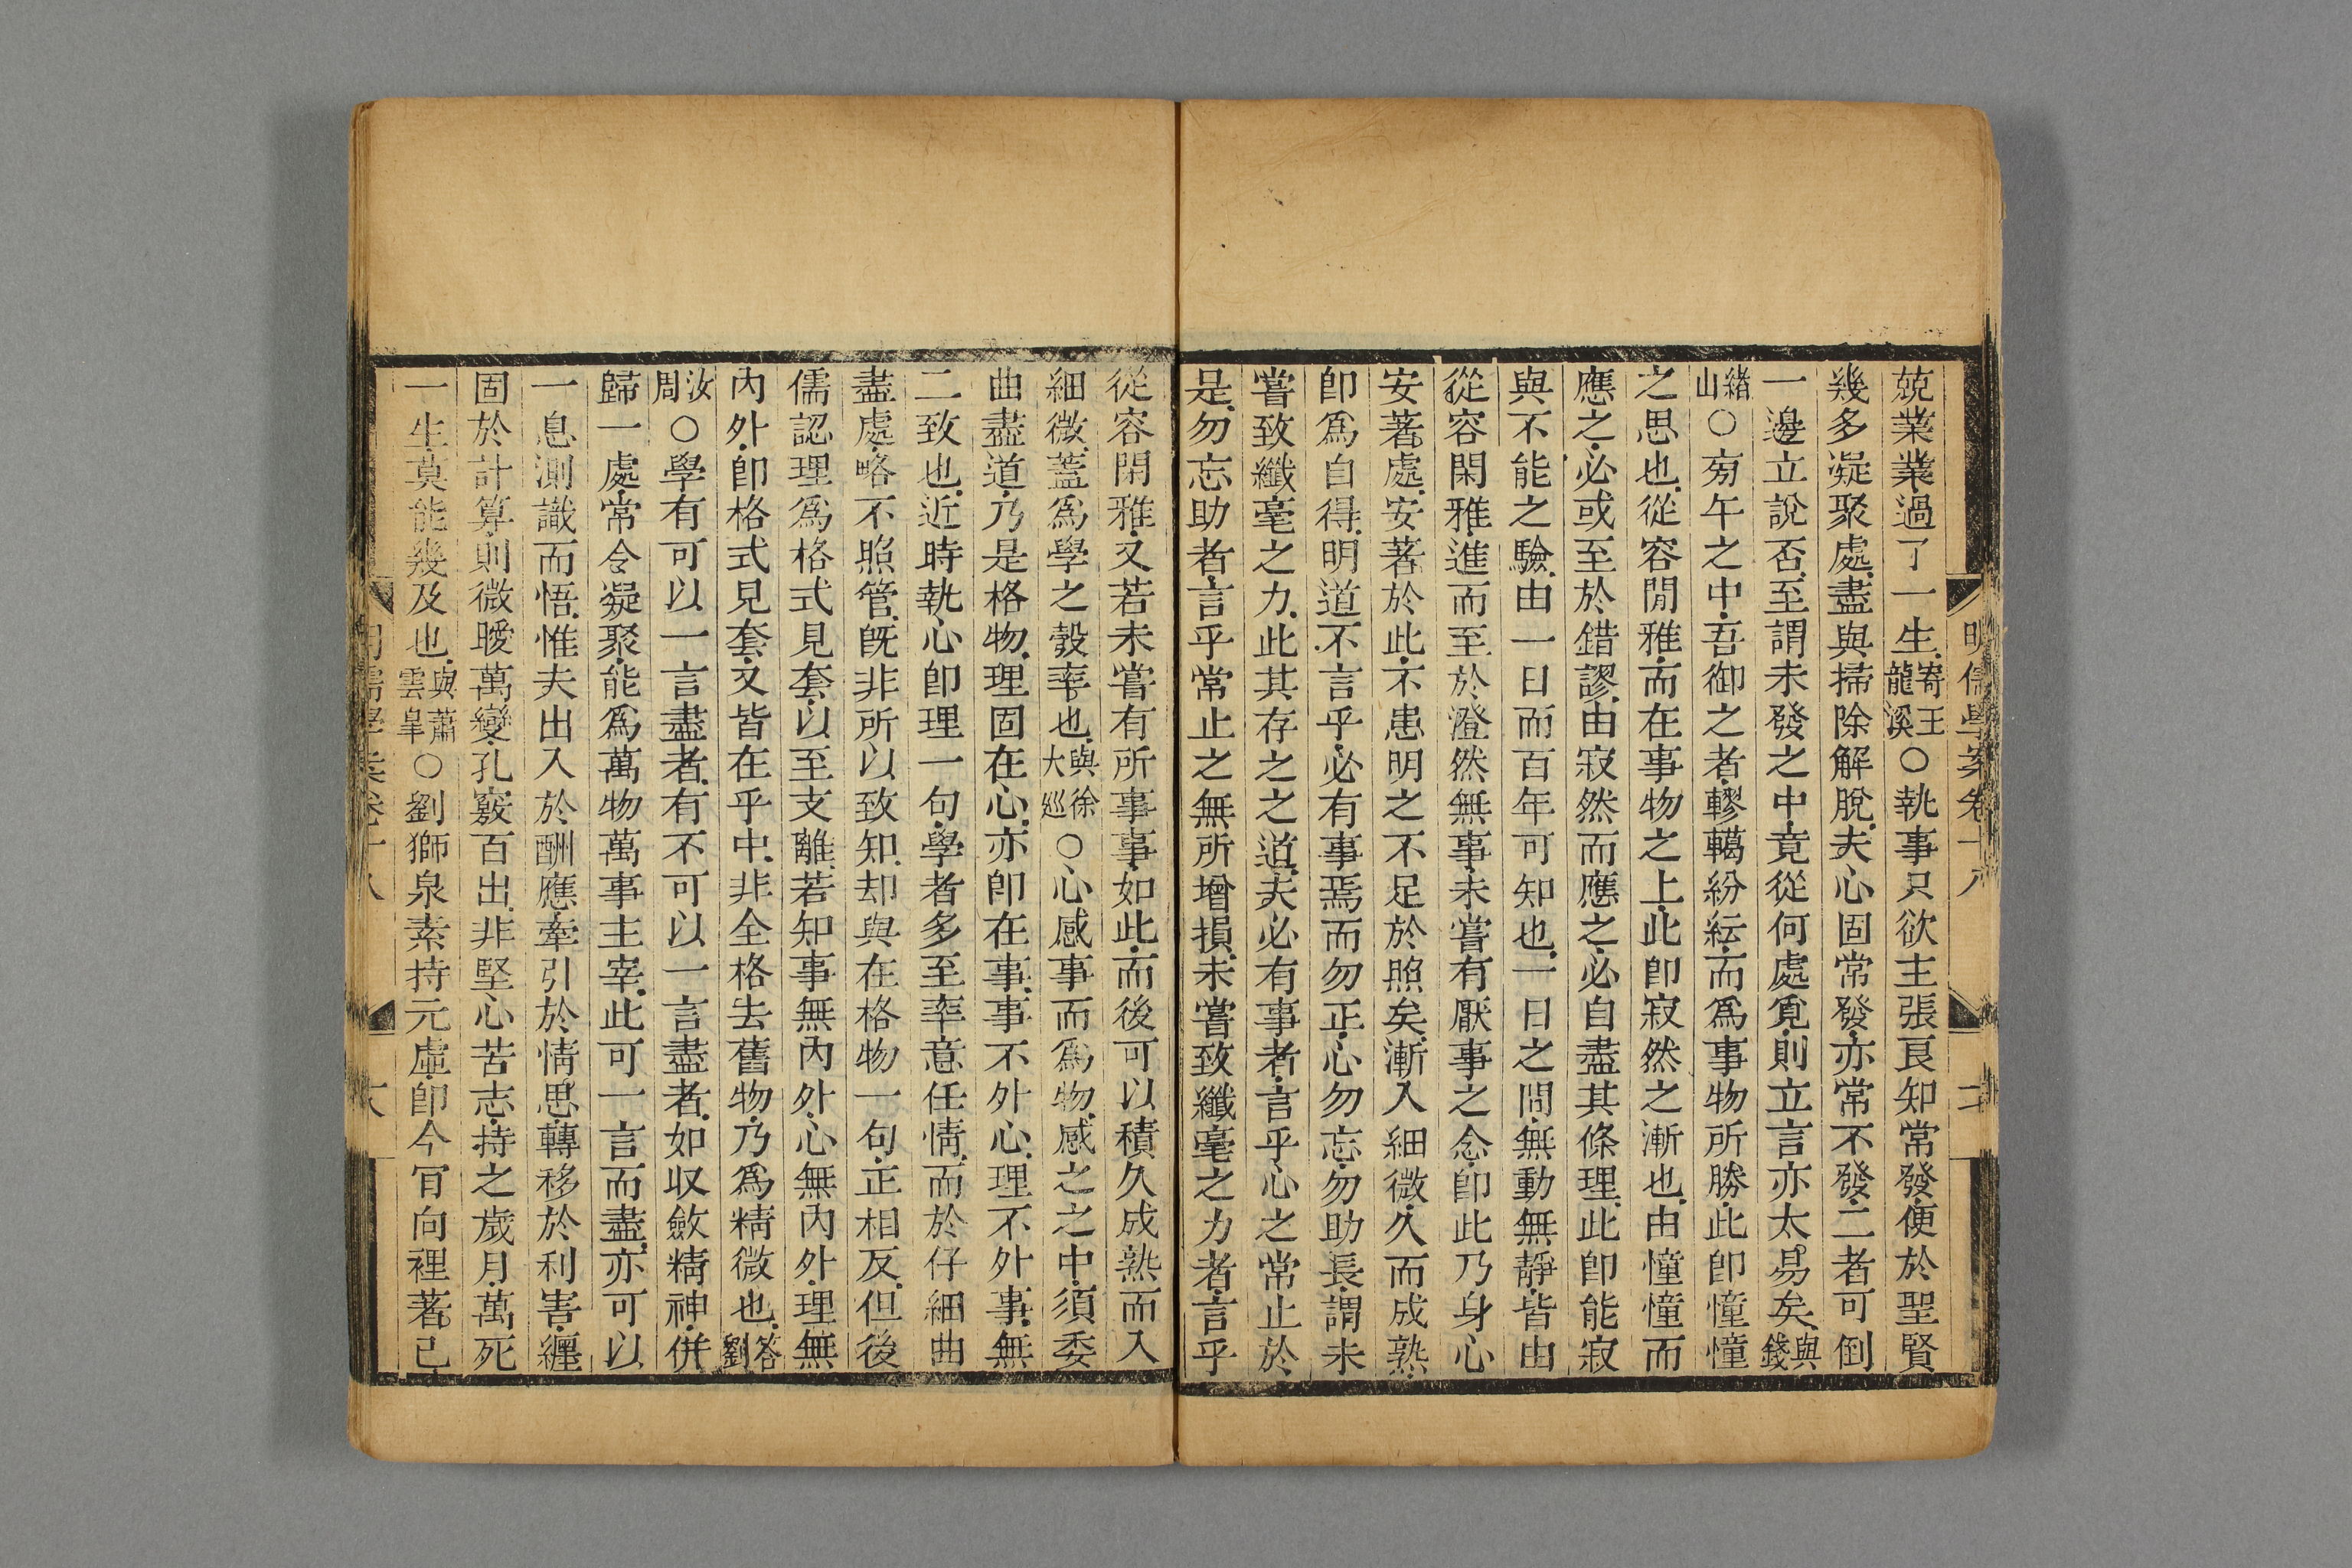 兢業業過了一生寄王龍溪○執事只欲主張良知常發便於聖賢
幾多凝聚處盡與掃除解脫夫心固常發亦常不發二者可倒
一邊立說否至謂未發之中竟從何處覓則立言亦太易矣與錢
緒山○旁午之中吾御之者轇轕紛紜而爲事物所勝此卽憧憧
之思也從容閒雅而在事物之上此卽寂然之漸也由憧憧而
應之必或至於錯謬由寂然而應之必自盡其條理此卽能寂
與不能之驗由一日而百年可知也一日之間無動無靜皆由
從容閑雅進而至於澄然無事未嘗有厭事之念卽此乃身心
安著處安著於此不患明之不足於照矣漸入細微久而成熟
卽爲自得明道不言乎必有事焉而勿正心勿忘勿助長謂未
嘗致纖毫之力此其存之之道夫必有事者言乎心之常止於
是勿忘助者言乎常止之無所增損未嘗致纖毫之力者言乎
從容閑雅又若未嘗有所事事如此而後可以積久成熟而入
細微蓋爲學之彀率也與徐大巡○心感事而爲物感之之中須委
曲盡道乃是格物理固在心亦卽在事事不外心理不外事無
二致也近時執心卽理一句學者多至率意任情而於仔細曲
盡處略不照管旣非所以致知却與在格物一句正相反但後
儒認理爲格式見套以至支離若知事無內外心無內外理無
內外卽格式見套又皆在乎中非全格去舊物乃爲精微也答劉
汝周○學有可以一言盡者有不可以一言盡者如収斂精神併
歸一處常令凝聚能爲萬物萬事主宰此可一言而盡亦可以
一息測識而悟惟夫出入於酬應牽引於情思轉移於利害纏
固於計算則微曖萬變孔竅百出非堅心苦志持之歲月萬死
一生莫能幾及也與蕭雲皐○劉獅泉素持元虛卽今肎向裡著己